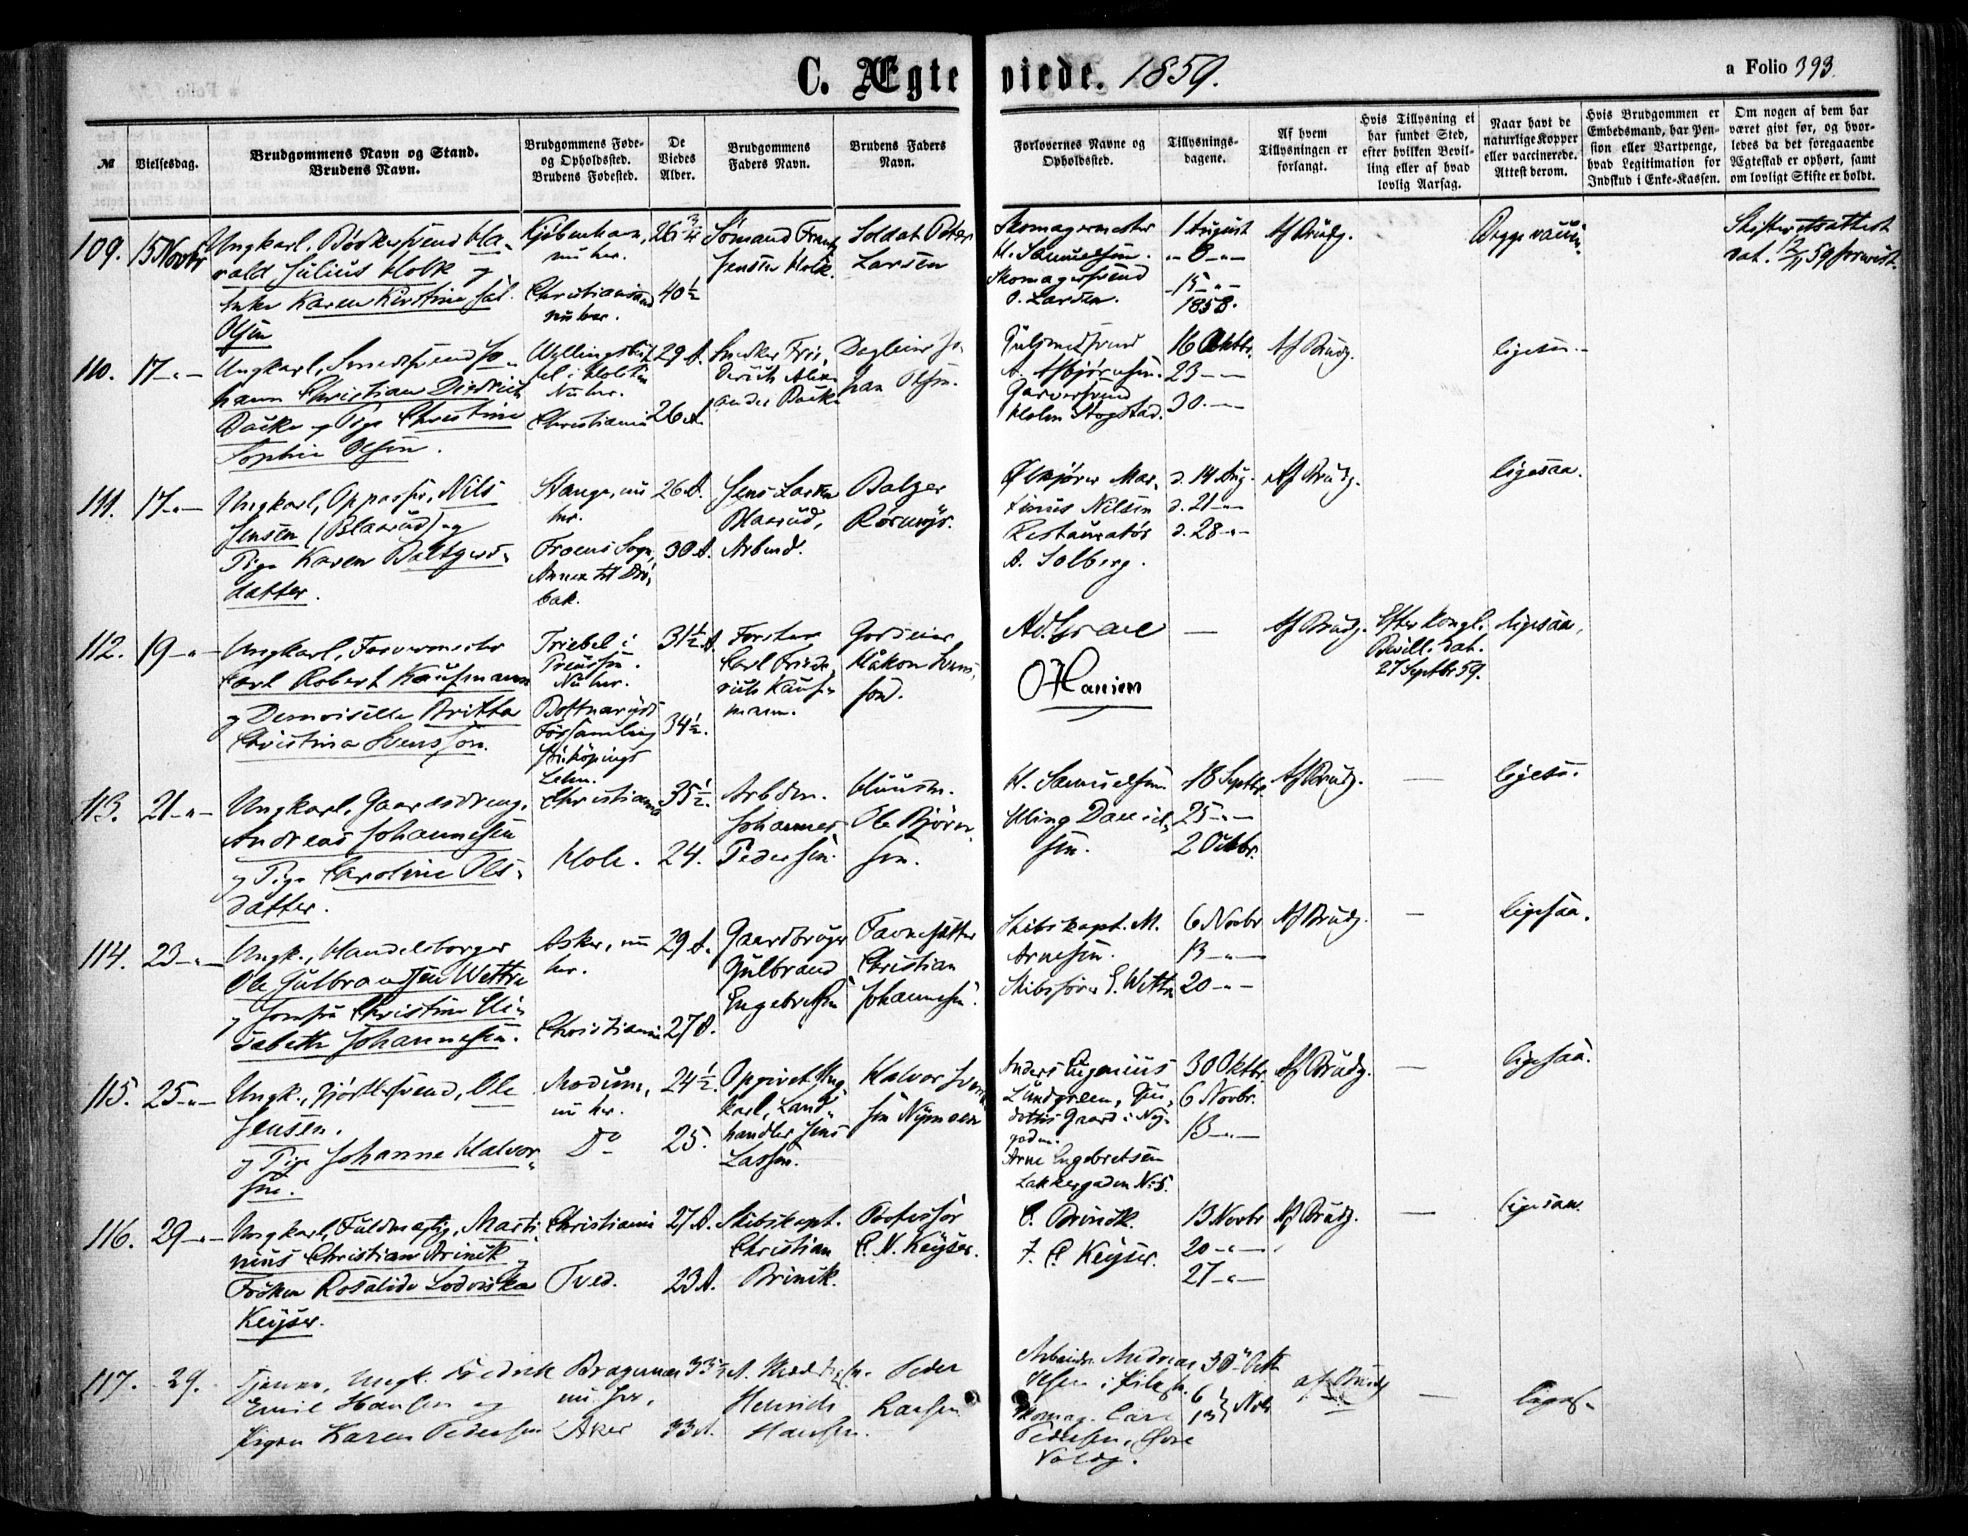 C. Ægteviede. 1859.
a Folio 393.
№
Vielsesdag.
Brudgommens Navn og Stand.
Brudens Navn.
Brudgommens Føde-
og Opholdssted.
Brudens Fødested.
De
Viedes
Alder.
Brudgommens
Faders Navn.
Brudens Faders
Navn.
Forlovernes Navne og
Opholdssted.
Tillysnings-
dagene.
Af hvem
Tillysningen er
forlangt.
Hvis Tillysning ei
har fundet Sted,
efter hvilken Bevil-
ling eller af hvad
lovlig Aarsag.
Naar havt de
naturlige Kopper
eller vaccinerede.
Attest derom.
Hvis Brudgommen er
Embedsmand, har Pen-
sion eller Vartpenge,
hvad Legitimation for
Indskud i Enke-Kassen.
Om nogen af dem har
været givt før, og hvor-
ledes da det foregaaende
Ægteskab er ophørt, samt
om lovligt Skifte er holdt.
109. 15 Novbr
Ungkarl, Bødkersvend Ha-
rald Julius Holk og
Enke Karen Kirstine
Olsen
Kjøbenhavn,
nu her.
Christiansand
nu her.
26 3/4
40 1/2
Sømand Frantz
Jensen Holk.
Soldat Peter
Larsen
Skomagermester
H. Samuelsen.
Skomagersvend
O. Larsen.
1 August
" 8 - " -
- 15 - " -
1858.
Af Brudg.
Begge vaccin.
Skifteretsattest
dat. 12/11 59 forevist.
110. 17 - " -
Ungkarl, Smedsvend Jo-
hann Christian Diedrich
Backe og Pige Christine
Sophie Olsen.
i Holsten
Nu her.
Christiania
29 A.
26 A.
Snedker Frie-
derich Alex-
ander Backe
Daglejer Jo-
han Olsen.
Guldsmedsvend
A. Asbjørnsen.
Garversvend
Holm Stogstad.
16 Oktbr.
23 - " -
30 - " -
Af Brudg.
ligesaa.
111. 17 - " -
Ungkarl, Oppasser, Nils
Jensen (Blaarud) og
Pige Karen Baltzers-
datter.
Stange, nu
her.
Froens Sogn,
Annex til Drø-
bak.
26 A.
30 A.
Jens Larsen
Blaarud,
Arbmd.
Balzer
Ølkjører Mar-
tinius Nilsen
Restauratør
A. Solberg.
d. 14 Aug.
d. 21 - " -
d. 28 - " -
Af Brudg.
ligesaa.
112. 19 - " -
Ungkarl, Farvermester
Carl Robert Kaufmann
og Demoiselle Britta
Christina Svensson.
Triebel i
Preussen.
Nu her.
Bottnaryds
Församling
Jönköpings
Lehn.
31 1/2 A.
34 1/2.
Forster
Carl Fried-
rich Kauf-
mann.
Godseier
Håkon Svens-
son.
Ad. Israel
O Hansen
—
Af Brudg.
Efter Kongl.
Bevill. dat.
27 Septbr 59.
ligesaa.
113. 21 - " -
Ungkarl, Gaardsdreng,
Andreas Johannesen
og Pige Caroline Ols-
datter.
Christiania
Hole.
35 1/2.
24.
Arbdm.
Johannes
Pedersen.
Huusm.
Ole Bjørn-
sen.
H. Samuelsen
Elling Daniel-
sen.
18 Septbr.
25 - " -
2 Octbr.
Af Brudg.
—
ligesaa.
114. 23 - " -
Ungk., Handelsborger
Ole Gulbrandsen Wettre
og Jomfru Christine Eli-
sabeth Johannesen.
Asker, nu
her.
Christiania
29 A.
27 A.
Gaardbruger
Gulbrand
Engebretsen
Favnesætter
Christian
Johannesen.
Skibskapt. M.
Arnesen.
Skibsfører E. Wettre
6 Novbr
13 - " -
20 - " -
Af Brudg.
—
ligesaa.
115. 25 - " -
Ungk., Gjørtlersvend, Ole
Jensen.
og Pige Johanne Halvor-
sen.
Modum,
nu her.
Do
24 1/2.
25.
Opgivet Ung-
karl, Land-
handler Jens
Lassen.
Halvor Iver-
sen Nymoen
Anders Eugenius
Lundgreen,
Gaard i Ny-
gaden.
Arne Engebretsen
Lakkergaden N. 5.
30 Oktbr.
6 Novbr.
13 - " -
Af Brudg.
—
ligesaa.
116. 29 - " -
Ungkarl, Fuldmægtig, Marti-
nius Christian Brinck og
Frøken Rosalide Lodviska
Keyser.
Christiania
Tved.
27 A.
23 A.
Skibskapt.
Christian
Brinck.
Professor
C. N. Keyser.
C. Brinck.
F. C. Keyser.
13 Novbr
20 - " -
27 - " -
Af Brudg.
—
ligesaa.
117. 29.
Tjener, Ungk. Fredrik
Emil Hansen og
Pigen Karen Pedersen
Bragernes
nu her,
Aker
33 1/2 A.
33 A.
Heinrich
Hansen.
Peder
Larsen
Arbeidsm. Andreas
Olsen i Pilest.
Skomag. Carl
Pedersen, Øvre
Voldg.
30 Oct
6
13 } Nov
af Brudg
—
ligesaa.